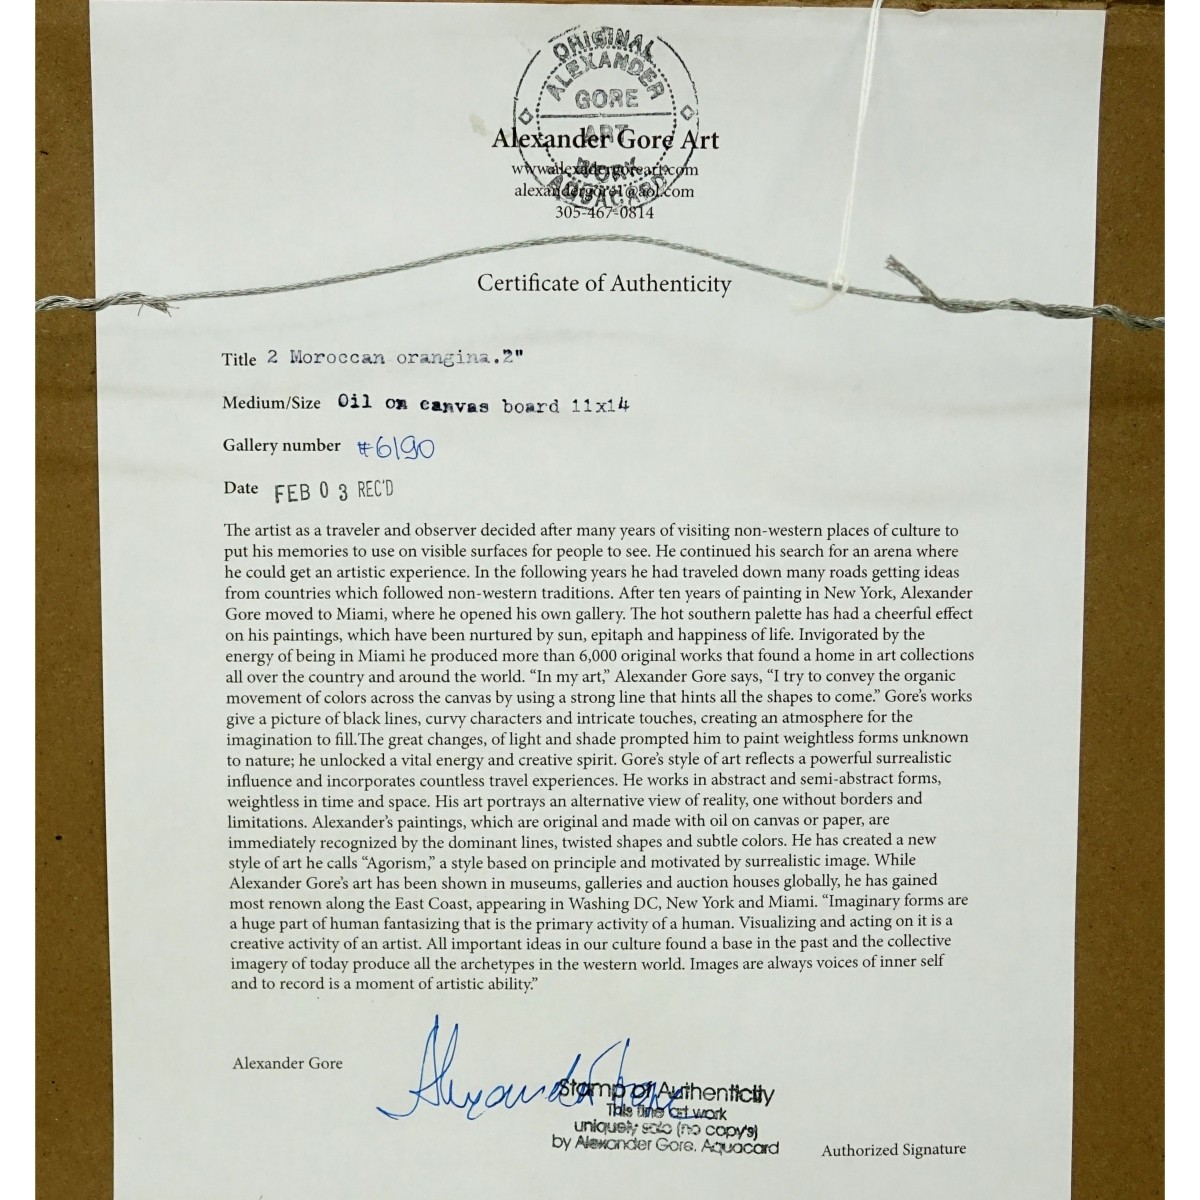 ORIGINAL
ALEXANDER
GORE
ART
WORK
AQUACARD
Alexander Gore Art
alexandergore1@aol.com
305-467-0814
Certificate of Authenticity
Title 2 Moroccan orangina.2"
Medium/Size Oil on canvas board 11x14
Gallery number #6190
Date FEB 0 3 REC'D
The artist as a traveler and observer decided after many years of visiting non-western places of culture to
put his memories to use on visible surfaces for people to see. He continued his search for an arena where
he could get an artistic experience. In the following years he had traveled down many roads getting ideas
from countries which followed non-western traditions. After ten years of painting in New York, Alexander
Gore moved to Miami, where he opened his own gallery. The hot southern palette has had a cheerful effect
on his paintings, which have been nurtured by sun, epitaph and happiness of life. Invigorated by the
energy of being in Miami he produced more than 6,000 original works that found a home in art collections
all over the country and around the world. “In my art,” Alexander Gore says, “I try to convey the organic
movement of colors across the canvas by using a strong line that hints all the shapes to come.” Gore’s works
give a picture of black lines, curvy characters and intricate touches, creating an atmosphere for the
imagination to fill.The great changes, of light and shade prompted him to paint weightless forms unknown
to nature; he unlocked a vital energy and creative spirit. Gore’s style of art reflects a powerful surrealistic
influence and incorporates countless travel experiences. He works in abstract and semi-abstract forms,
weightless in time and space. His art portrays an alternative view of reality, one without borders and
limitations. Alexander’s paintings, which are original and made with oil on canvas or paper, are
immediately recognized by the dominant lines, twisted shapes and subtle colors. He has created a new
style of art he calls “Agorism,” a style based on principle and motivated by surrealistic image. While
Alexander Gore’s art has been shown in museums, galleries and auction houses globally, he has gained
most renown along the East Coast, appearing in Washing DC, New York and Miami. “Imaginary forms are
a huge part of human fantasizing that is the primary activity of a human. Visualizing and acting on it is a
creative activity of an artist. All important ideas in our culture found a base in the past and the collective
imagery of today produce all the archetypes in the western world. Images are always voices of inner self
and to record is a moment of artistic ability.”
Alexander Gore
Alexander Gore
Stamp of Authenticity
This fine art work
uniquely solo (no copy's)
by Alexander Gore. Aquacard
Authorized Signature